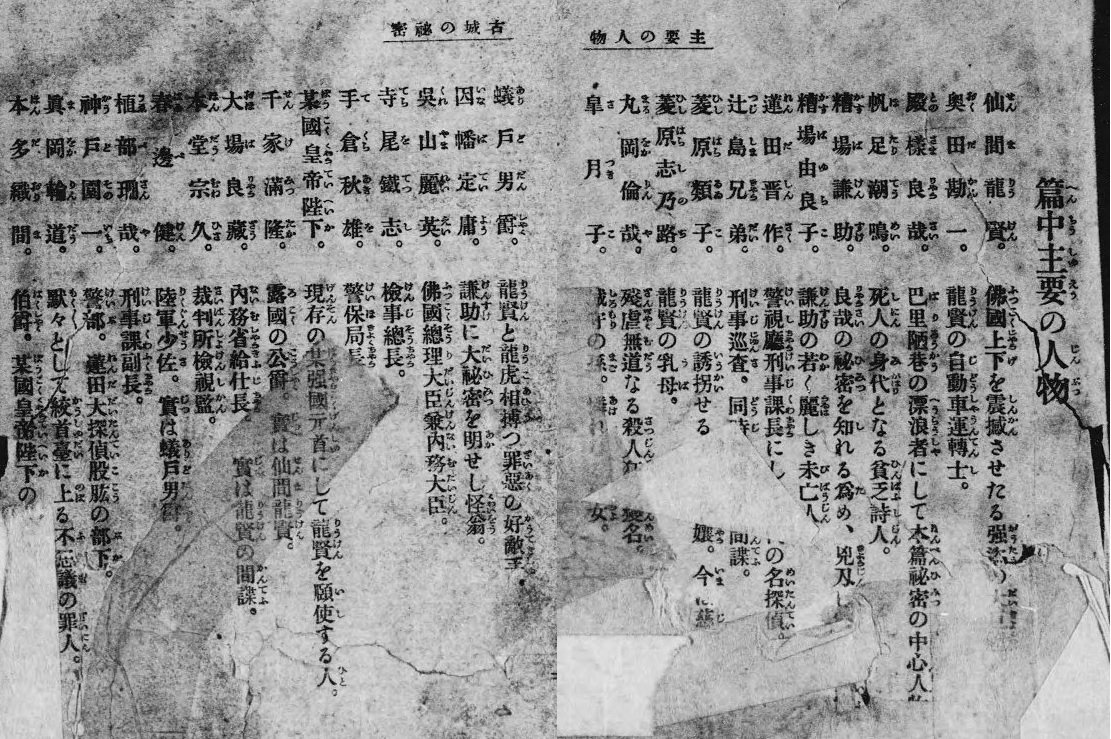 主要の人物
篇中主要の人物
仙間龍賢。佛國上下を震撼させたる强
奥田勘一。龍賢の自動車運轉士。
殿樣良哉。巴里陋巷の漂浪者にして本篇祕密の中心人物
帆足潮鳴。死人の身代となる貧乏詩人。
糟場謙助。良哉の祕密を知れる爲め、兇刄に
糟場由良子。謙助の若く麗しき未亡人
蓮田晋作。警視廳刑事課長にし の名探偵。
辻島兄弟。刑事巡査。同時 間諜。
菱原類子。龍賢の誘拐せる 孃。今
菱原志乃路。龍賢の乳母。
丸岡倫哉。殘虐無道なる殺人 名。
皐月子。 女。
古城の祕密
蟻戸男爵。龍賢と龍虎相搏つ罪惡の好敵手。
因幡定庸。謙助に大祕密を明せし怪翁。
呉山麗英。佛國總理大臣兼内務大臣。
寺尾鐵志。檢事總長。
手倉秋雄。警保局長
某國皇帝陛下。現存の某强國元首にして龍賢を頤使する人。
千家滿隆。露國の公爵。實は仙間龍賢。
大場良藏。内務省給仕長。實は龍賢の間諜。
本堂宗久。裁判所檢視監。
春邊健。陸軍少佐。實は蟻戸男爵。
植部珊哉。刑事課副長。
神戸園一。警部。蓮田大探偵股肱の部下。
眞岡輪道。默々として絞首臺に上る不思議の罪人。
本多織間。伯爵。某國皇帝陛下の